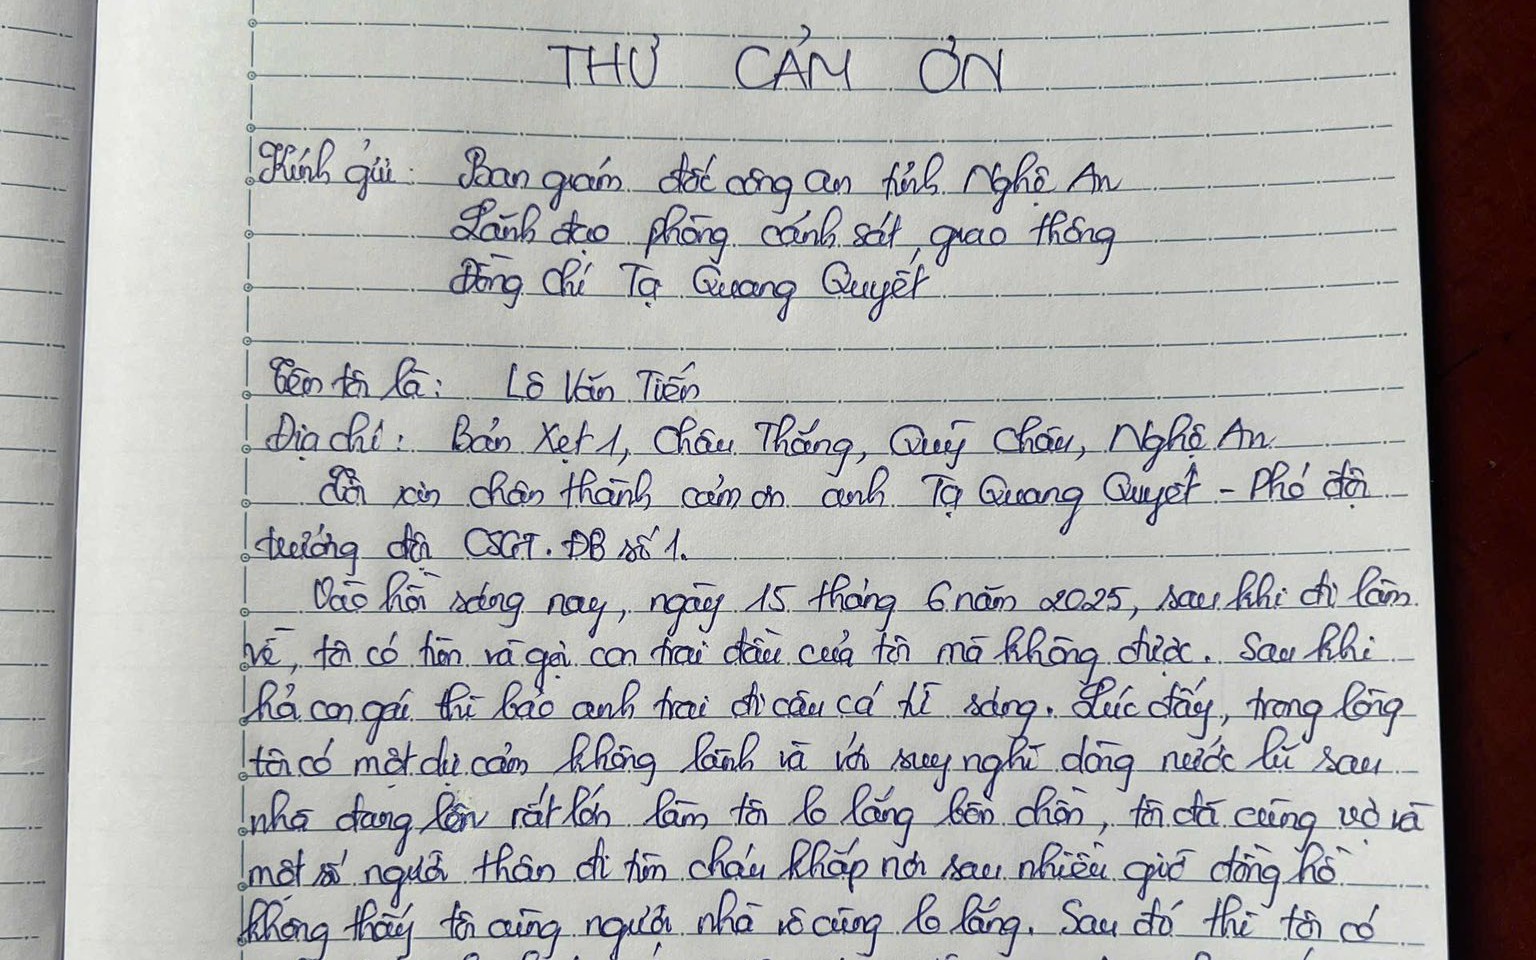 THƯ CẢM ƠN
Kính gửi: Ban giám đốc công an tỉnh Nghệ An
Lãnh đạo phòng cảnh sát giao thông
Đồng chí Tạ Quang Quyết
Tên tôi là: Lô Văn Tiến
Địa chỉ: Bản Xẹt 1, Châu Thắng, Quỳ Châu, Nghệ An.
Tôi xin chân thành cảm ơn anh Tạ Quang Quyết - Phó đội
trưởng đội CSGT. ĐB số 1.
Vào hồi sáng nay, ngày 15 tháng 6 năm 2025, sau khi đi làm
về, tôi có tìm và gọi con trai đầu của tôi mà không được. Sau khi
hỏi con gái thì bảo anh trai đi câu cá từ sáng. Lúc đấy, trong lòng
tôi có một dự cảm không lành và với suy nghĩ dòng nước lũ sau
nhà đang lên rất lớn làm tôi lo lắng bồn chồn, tôi đã cùng vợ và
một số người thân đi tìm cháu khắp nơi sau nhiều giờ đồng hồ
không thấy tôi cùng người nhà vô cùng lo lắng. Sau đó thì tôi có